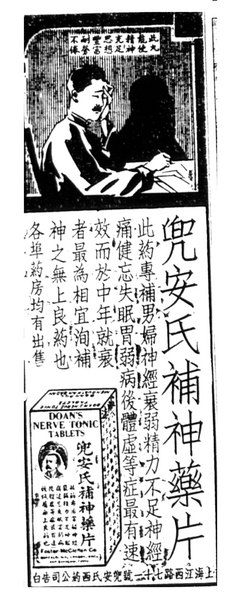 此丸能使精神充足思想豐富耐勞不倦
兜安氏補神藥片
此藥專補男婦神經衰弱精力不足神經
痛健忘失眠胃弱病後體虛等症最有速
效而於中年就衰
者最為相宜洵補
神之無上良藥也
各埠药房均有出售
DOAN'S
NERVE TONIC
TABLETS
兜安氏補神藥片
Foster-McClellan Co.
上海江西路七十一號兜安氏西药公司告白